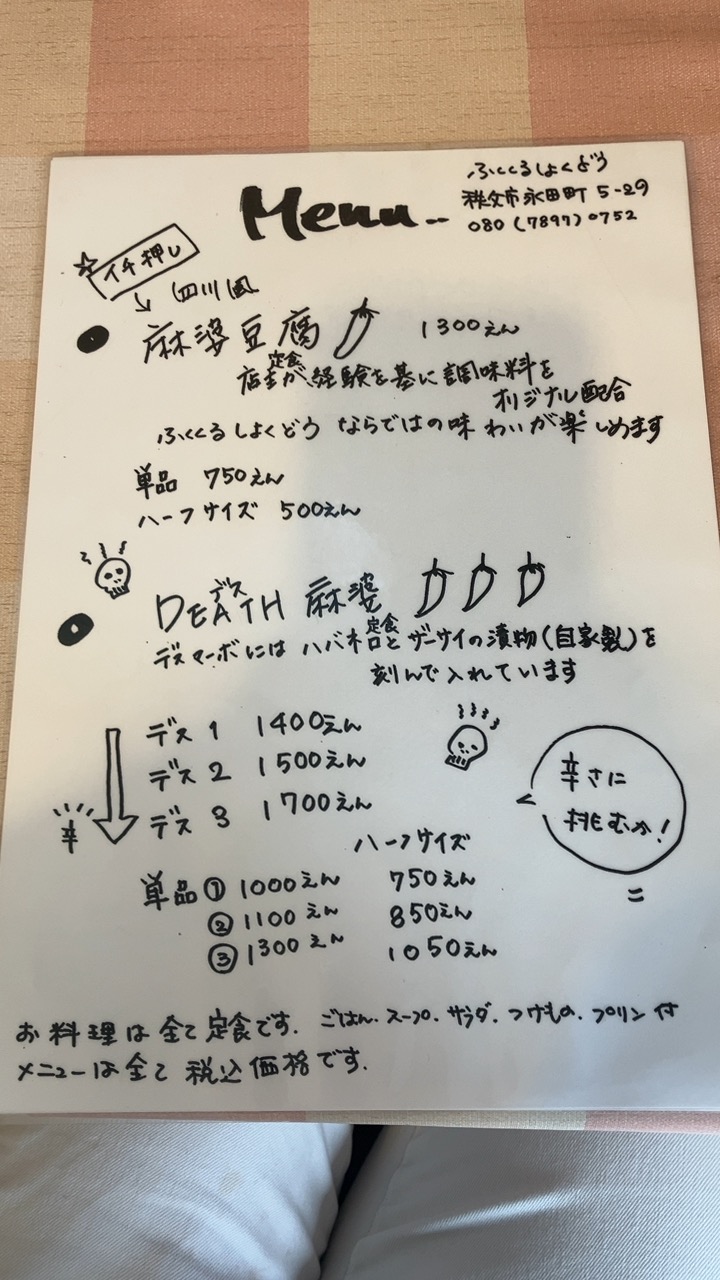 Menu
ふくくるしょくどう
秩父市永田町 5-29
080(7897)0752
イチ押し
四川風
麻婆豆腐 定食 1300えん
店主が経験を基に調味料を
オリジナル配合
ふくくるしょくどう ならではの味わいが楽しめます
単品 750えん
ハーフサイズ 500えん
デス
DEATH 麻婆 定食
デスマーボにはハバネロとザーサイの漬物(自家製)を
刻んで入れています
デス 1 1400えん
デス 2 1500えん
デス 3 1700えん
辛
辛さに
挑むか!
ハーフサイズ
単品 ① 1000えん 750えん
② 1100えん 850えん
③ 1300えん 1050えん
お料理は全て定食です. ごはん.スープ.サラダ.つけもの.プリン付
メニューは全て税込価格です.